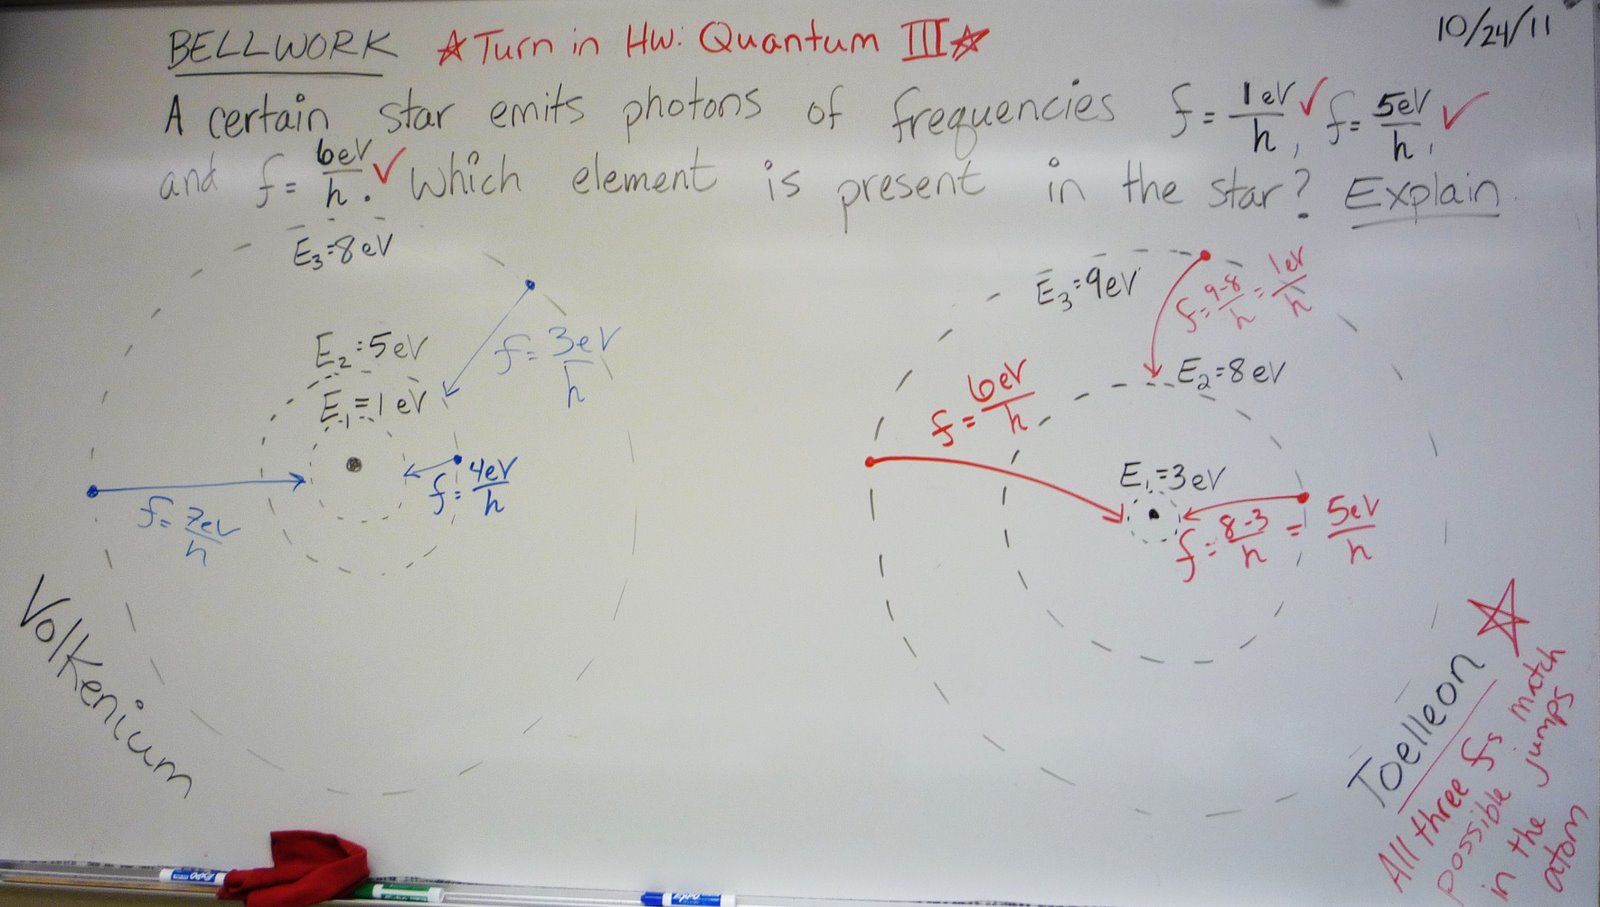 BELLWORK ☆Turn in HW: Quantum III☆
10/24/11
A certain star emits photons of frequencies f = 1eV/h ✓, f = 5eV/h ✓,
and f = 6eV/h. ✓ Which element is present in the star? Explain.
E₃=8eV
E₂=5eV
E₁=1eV
f=3eV/h
f=4eV/h
f=7eV/h
Volkenium
E₃=9eV
f=9-8/h=1eV/h
E₂=8eV
f=6eV/h
E₁=3eV
f=8-3/h=5eV/h
Joelleon ☆
All three fs match
possible jumps
in the
atom
EXPO